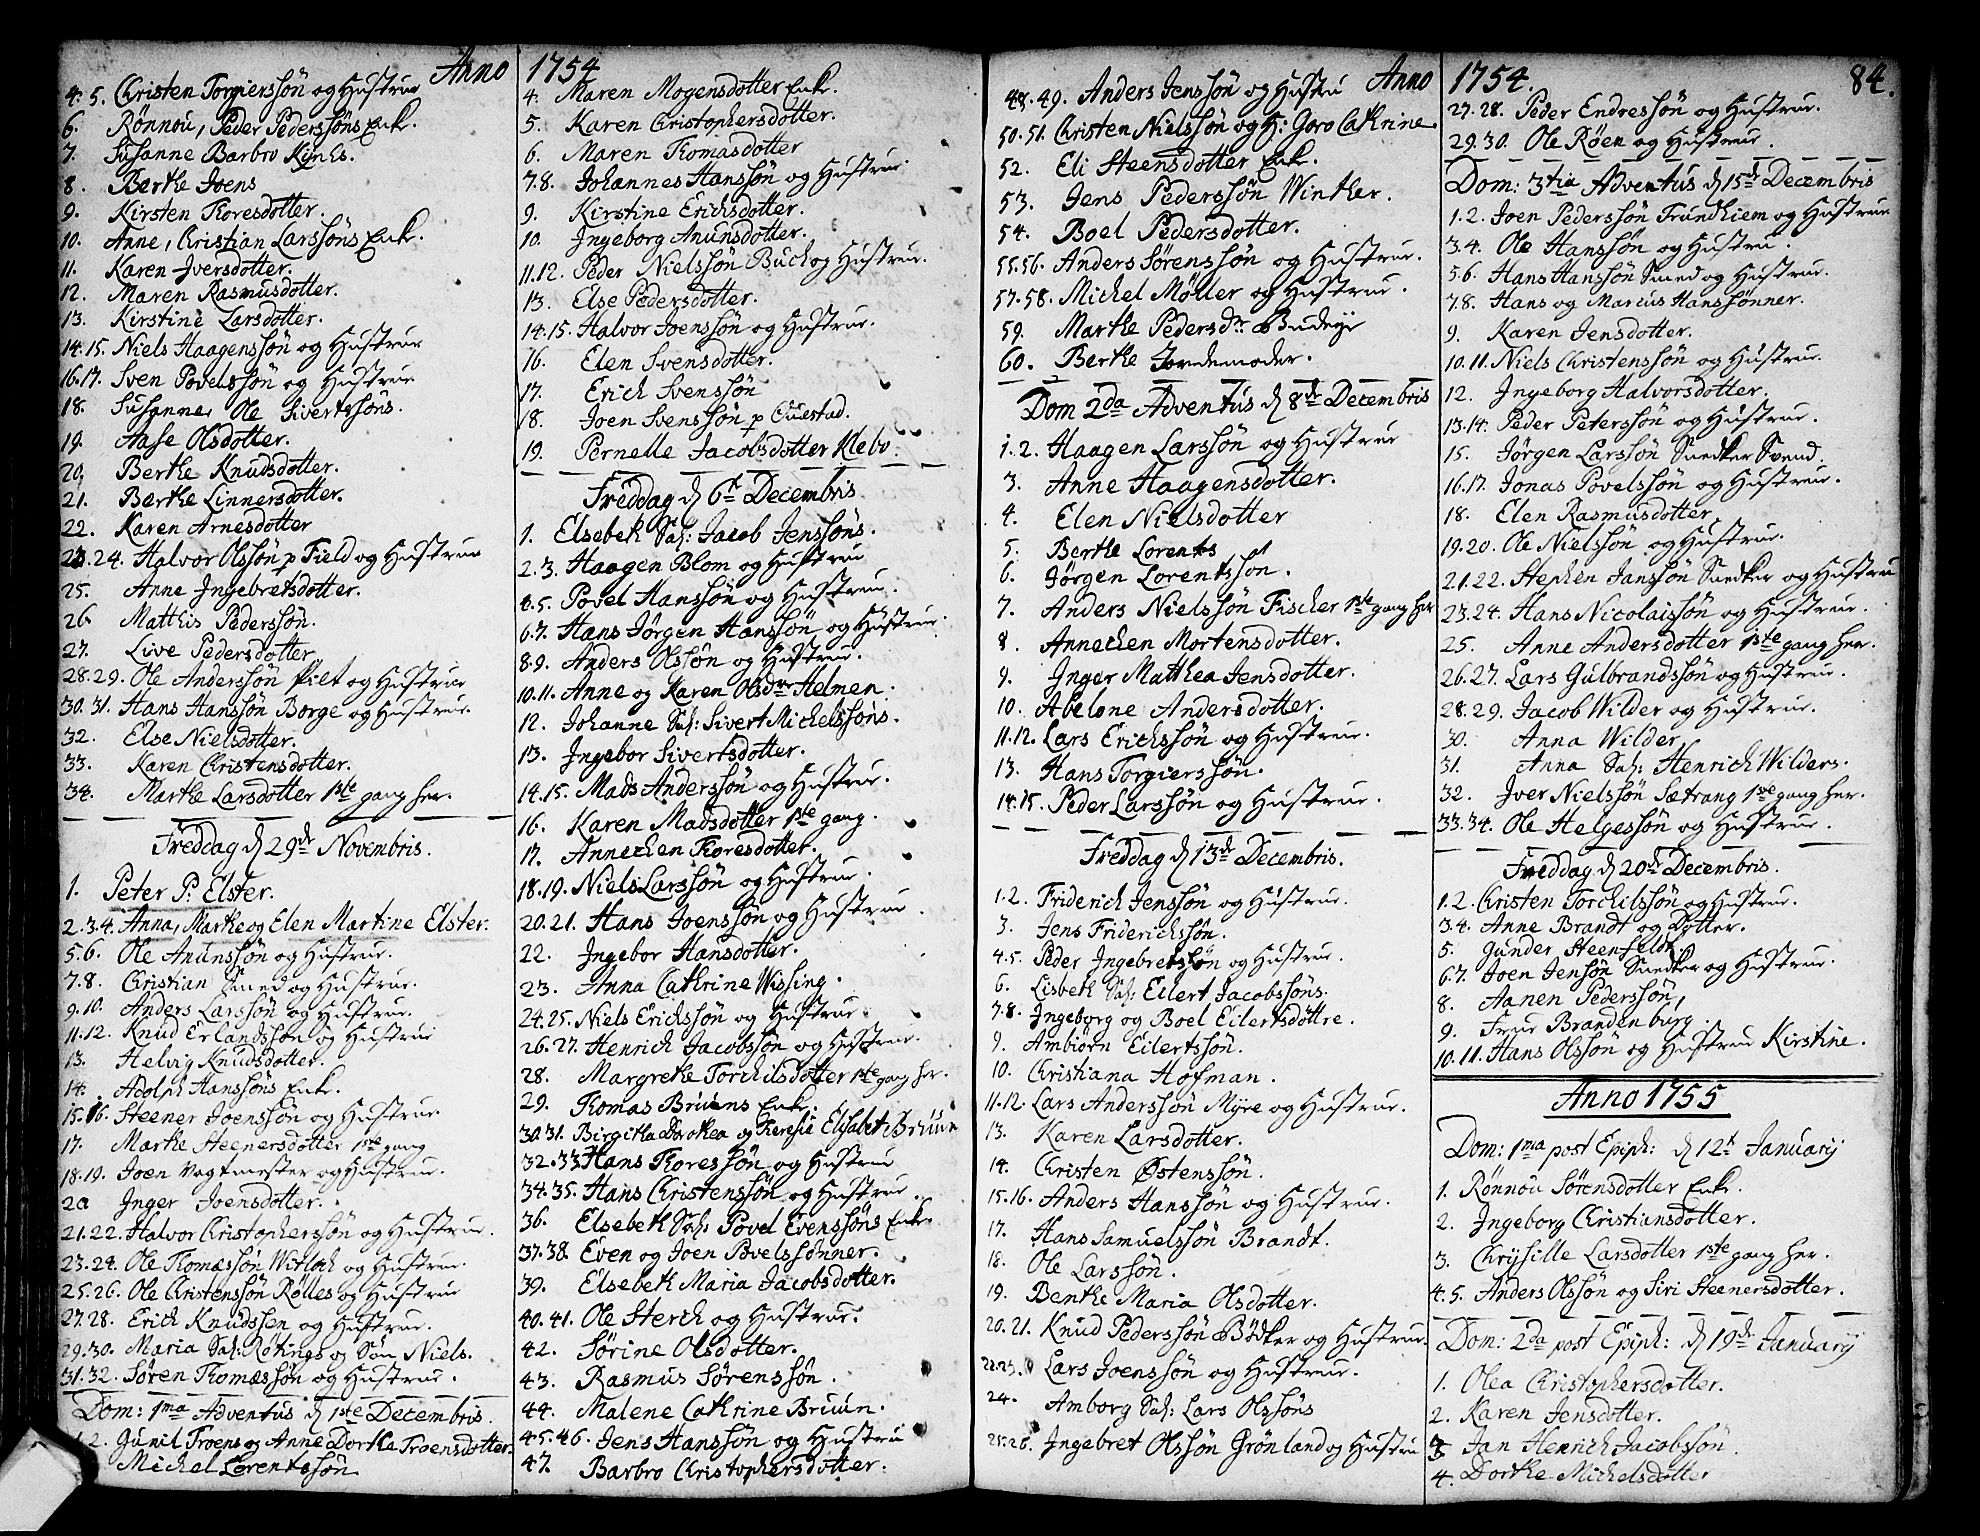 Anno 1754
4. 5. Christen Torgierssön og Hustrue
6. Rönnou, Peder Pederssöns Enke.
7. Susanne Barbro Kynts.
8. Berthe Joens
9. Kirsten Thoresdotter.
10. Anne, Christian Larssöns Enke.
11. Karen Iversdotter.
12. Maren Rasmusdotter.
13. Kirstine Larsdotter.
14.15. Niels Haagenssön og Hustrue
16.17. Sven Povelssön og Hustrue
18. Susanne, Ole Sivertssöns.
19. Aase Olsdotter.
20. Berthe Knudsdotter.
21. Berthe Linnersdotter.
22. Karen Arnesdotter
23.24. Halvor Olssön p Field og Hustrue
25. Anne Ingebretsdotter.
26. Matthis Pederssön.
27. Live Pedersdotter
28.29. Ole Anderssön Pilt og Hustrue
30.31. Hans Hanssön Borge og Hustrue.
32. Else Nielsdotter.
33. Karen Christensdotter.
34. Marthe Larsdotter 1ste gang her.
Freddag d 29de Novembris.
1. Peter P. Elster.
2.3.4. Anna, Marthe og Elen Martine Elster.
5.6. Ole Anunssön og Hustrue.
7.8. Christian Smed og Hustrue.
9.10. Anders Larssön og Hustrue.
11.12. Knud Erlandssön og Hustrue
13. Helvig Knudsdotter.
14. Adolph Hanssöns Enke.
15.16. Steener Joenssön og Hustrue
17. Marthe Steenersdotter 1ste gang
18.19. Joen Vagtmester og Hustrue.
20 Inger Joensdotter.
21.22. Halvor Christopherssön og Hustrue.
23.24. Ole Thomæssön Witloch og Hustrue.
25.26. Ole Christenssön Rölles og Hustrue
27.28. Erich Knudssen og Hustrue.
29.30. Maria Sal: Rötings og Sön Niels.
31.32. Sören Thomæssön og Hustrue.
Dom: 1ma Adventus d 1ste Decembris.
1.2. Gunil Troens og Anne Dorthe Troensdotter.
Michel Lorentssön
4. Maren Mogensdotter Enke.
5. Karen Christophersdotter.
6. Maren Thomasdotter
7.8. Johannes Hanssön og Hustrue.
9. Kirstine Erichsdotter.
10. Ingeborg Anunsdotter.
11.12. Peder Nielssön Buch og Hustrue.
13. Else Pedersdotter.
14.15. Halvor Joenssön og Hustrue.
16. Elen Svensdotter.
17. Erich Svenssön
18. Joen Svenssön p
19. Pernelle Jacobsdotter Klebo.
Freddag d 6te Decembris.
1. Elsebeth Sal: Jacob Jenssöns.
2.3. Haagen Blom og Hustrue
4.5. Povel Hanssön og Hustrue.
6.7. Hans Jörgen Hanssön og Hustrue.
8.9. Anders Olssön og Hustrue.
10.11. Anne og Karen Olsdtr Helmen.
12. Johanne Sal: Sivert Michelssöns.
13. Ingebor Sivertsdotter.
14.15. Mads Anderssön og Hustrue.
16. Karen Madsdotter 1ste gang.
17. Annechen Thoresdotter.
18.19. Niels Larssön og Hustrue.
20.21. Hans Joenssön og Hustrue.
22. Ingebor Hansdotter.
23. Anna Cathrine Wissing.
24.25. Niels Erichssön og Hustrue.
26.27. Henrich Jacobssön og Hustrue.
28. Margrethe Torchilsdotter 1ste gang her.
29. Thomas Bruuns Enke.
30.31. Birgitha Dorothea og Theresie Elisabeth Bruun
32.33 Hans Thoressön og Hustrue
34.35. Hans Christenssön og Hustrue.
36. Elsebeth Sal: Povel Evenssöns Enke.
37.38. Even og Joen Povelssönner.
39. Elsebeth Maria Jacobsdotter.
40.41. Ole Sterch og Hustrue.
42. Sörine Olsdotter.
43. Rasmus Sörenssön.
44. Malene Cathrine Bruun.
45.46. Jens Hanssön og Hustrue
47. Barbro Christophersdotter.
Anno 1754. 84.
48.49. Anders Jenssön og Hustru
50.51. Christen Nielssön og H: Goro Cathrine.
52. Eli Steensdotter Enke.
53. Jens Pederssön Winther.
54. Boel Pedersdotter.
55.56. Anders Sörenssön og Hustrue.
57.58. Michel Möller og Hustrue.
59. Marthe Pedersdr Budeye
60. Berthe Jordemoder.
Dom 2da Adventus d 8de Decembris
1.2. Haagen Larssön og Hustrue
3. Anne Haagensdotter.
4. Elen Nielsdotter
5. Berthe Lorents
6. Jörgen Lorentssön.
7. Anders Nielssön Fischer 1ste gang her
8. Annechen Mortensdotter.
9. Inger Matthea Jensdotter.
10. Abelone Andersdotter.
11.12. Lars Erichssön og Hustrue.
13. Hans Torgierssön.
14.15. Peder Larssön og Hustrue.
Freddag d 13de Decembris.
1.2. Friderich Jenssön og Hustrue.
3. Jens Friderichssön.
4.5. Peder Ingebretssön og Hustrue.
6. Lisbeth Sal: Eilert Jacobssöns.
7.8. Ingeborg og Boel Eilertsdöttre.
9. Ambiörn Eilertssön.
10. Christiana Hofman.
11.12. Lars Anderssön Myre og Hustrue.
13. Karen Larsdotter.
14. Christen Östenssön.
15.16. Anders Hanssön og Hustrue.
17. Hans Samuelssön Brandt.
18. Ole Larssön.
19. Benthe Maria Olsdotter.
20.21. Knud Pederssön Bödker og Hustrue.
22.23. Lars Joenssön og Hustrue.
24. Amborg Sal: Lars Olssöns
25.26. Ingebret Olssön Grönland og Hustru
27.28. Peder Endressön og Hustrue.
29.30. Ole Röen og Hustrue.
Dom: 3tia Adventus d 15de Decembris
1.2. Joen Pederssön Trundhiem og Hustrue
3.4. Ole Hanssön og Hustru.
5.6. Hans Hanssön Smed og Hustrue.
7.8. Hans og Marcus Hanssönner.
9. Karen Jensdotter.
10.11. Niels Christenssön og Hustrue.
12. Ingeborg Halvorsdotter.
13.14. Peder Peterssön og Hustrue.
15. Jörgen Larssön Snedker Svend.
16.17. Jonas Povelssön og Hustrue.
18. Elen Rasmusdotter
19.20. Ole Nielssön og Hustrue.
21.22. Stephen Janssön Snedker og Hustru
23.24. Hans Nicolaissön og Hustrue.
25. Anne Andersdotter 1ste gang her.
26.27. Lars Gulbrandssön og Hustrue.
28.29. Jacob Wilder og Hustrue.
30. Anna Wilder
31. Anna Sal: Henrich Wilders.
32. Iver Nielssön Sætrang 1ste gang her.
33.34. Ole Helgessön og Hustrue.
Freddag d 20de Decembris.
1.2. Christen Torchilssön og Hustrue.
3.4. Anne Brandt og Dotter.
5. Gunder Steenfeldt.
6.7. Joen Jensön Snedker og Hustrue.
8. Aanen Pederssön,
9. Frue Brandenburg.
10.11. Hans Olssön og Hustrue Kirstine.
Anno 1755
Dom: 1ma post Epiph: d 12te Januarij
1. Rönnou Sörensdotter Enke.
2. Ingeborg Christiansdotter.
3. Chrysille Larsdotter 1ste gang her.
4.5. Anders Olssön og Siri Steenersdotter.
Dom: 2da post Epiph: d 19de Januarij
1. Olea Christophersdotter.
2. Karen Jensdotter.
3 Jan Henrich Jacobssön
4. Dorthe Michelsdotter